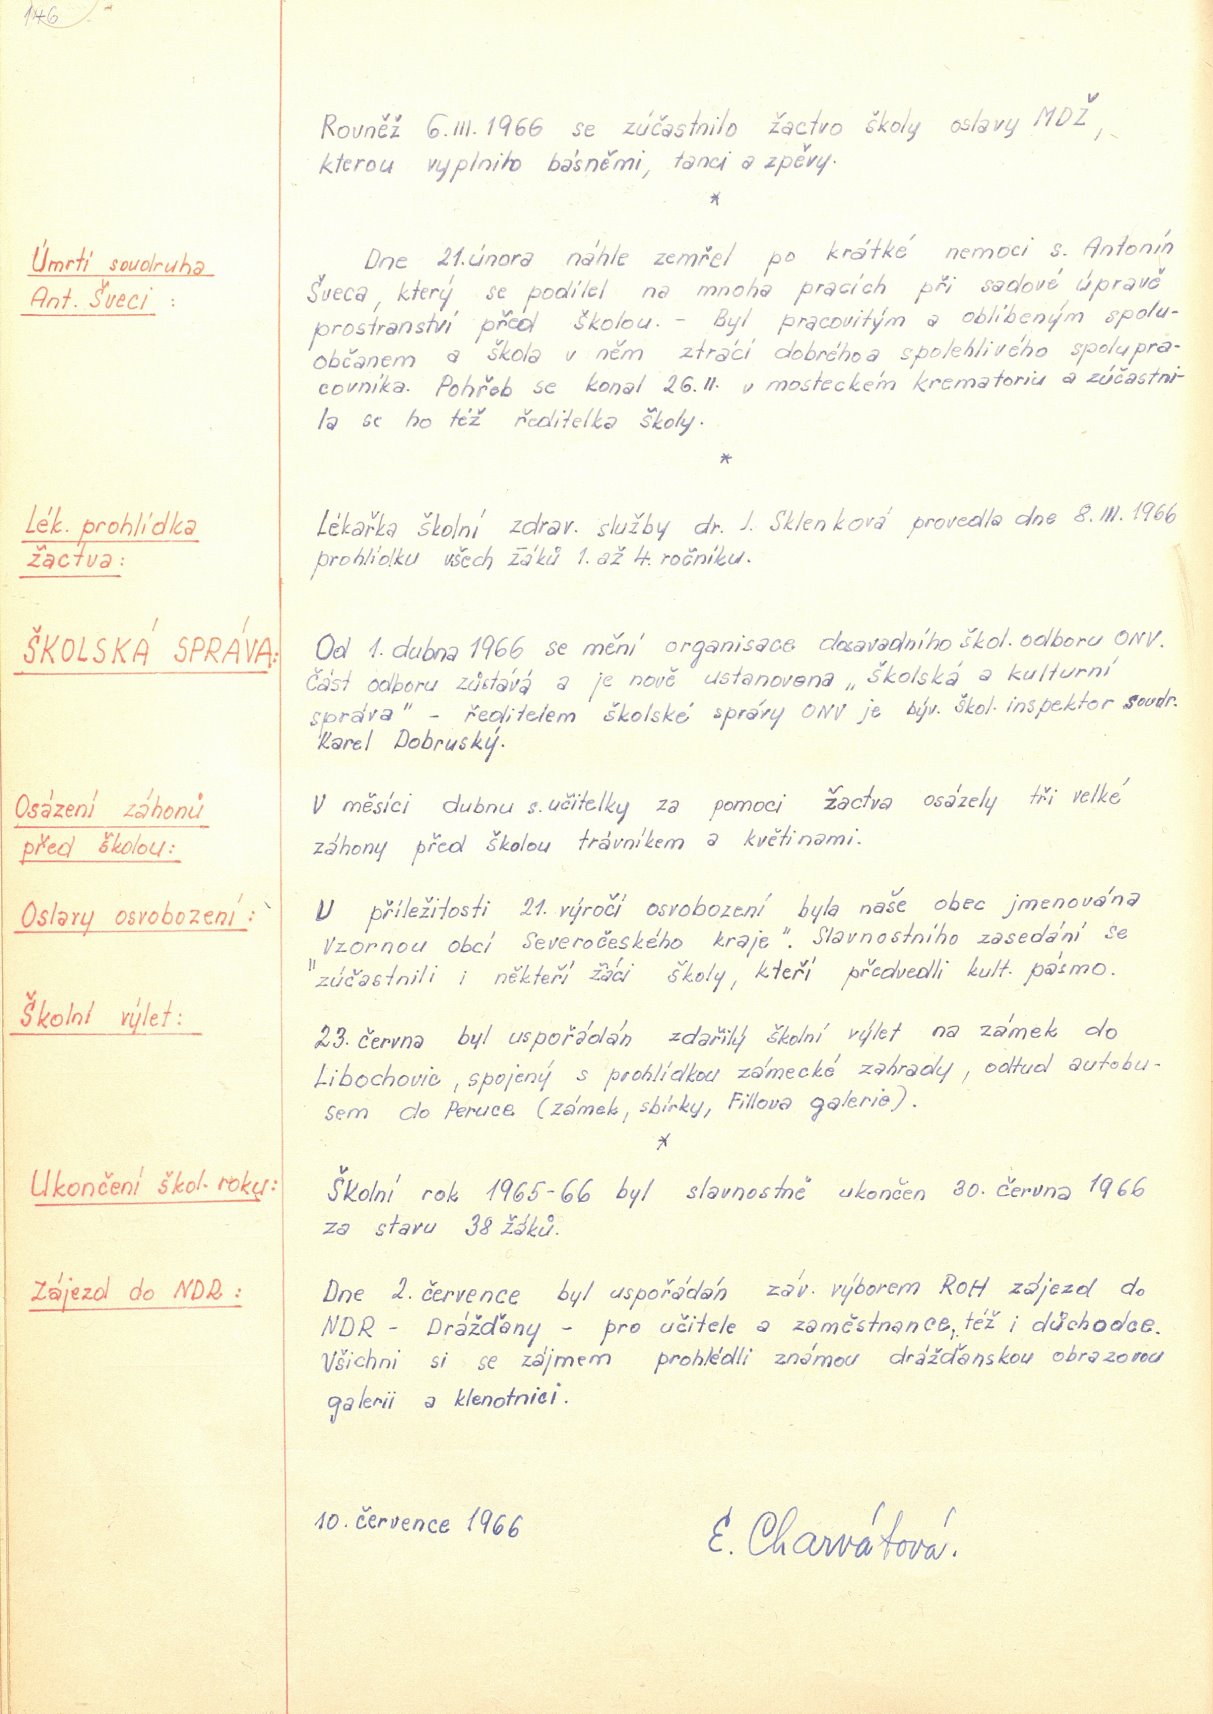 146
Rovněž 6.III.1966 se zúčastnilo žactvo školy oslavy MDŽ,
kterou vyplnilo básněmi, tanci a zpěvy.
*
Úmrtí soudruha
Ant. Šveci :
Dne 21.února náhle zemřel po krátké nemoci s. Antonín
Šveca, který se podílel na mnoha pracích při sadové úpravě
prostranství před školou. – Byl pracovitým a oblíbeným spolu-
občanem a škola v něm ztrácí dobrého a spolehlivého spolupra-
covníka. Pohřeb se konal 26.II. v mosteckém krematoriu a zúčastni-
la se ho též ředitelka školy.
*
Lék. prohlídka
žactva :
Lékařka školní zdrav. služby dr. J. Sklenková provedla dne 8.III.1966
prohlídku všech žáků 1. až 4. ročníku.
ŠKOLSKÁ SPRÁVA:
Od 1. dubna 1966 se mění organisace dosavadního škol. odboru ONV.
Část odboru zůstává a je nově ustanovena „Školská a kulturní
správa" – ředitelem školské správy ONV je býv. škol. inspektor soudr.
Karel Dobruský.
Osázení záhonů
před školou:
V měsíci dubnu s. učitelky za pomoci žactva osázely tři velké
záhony před školou trávníkem a květinami.
Oslavy osvobození :
U příležitosti 21. výročí osvobození byla naše obec jmenována
"Vzornou obcí Severočeského kraje". Slavnostního zasedání se
zúčastnili i někteří žáci školy, kteří předvedli kult. pásmo.
Školní výlet :
23. června byl uspořádán zdařilý školní výlet na zámek do
Libochovic, spojený s prohlídkou zámecké zahrady, odtud autobu-
sem do Peruce (zámek, sbírky, Fillova galerie).
*
Ukončení škol. roku:
Školní rok 1965-66 byl slavnostně ukončen 30. června 1966
za stavu 38 žáků.
Zájezd do NDR :
Dne 2. července byl uspořádán záv. výborem ROH zájezd do
NDR – Drážďany – pro učitele a zaměstnance, též i důchodce.
Všichni si se zájmem prohlédli známou drážďanskou obrazovou
galerii a klenotnici.
10. července 1966
E. Charvátová.